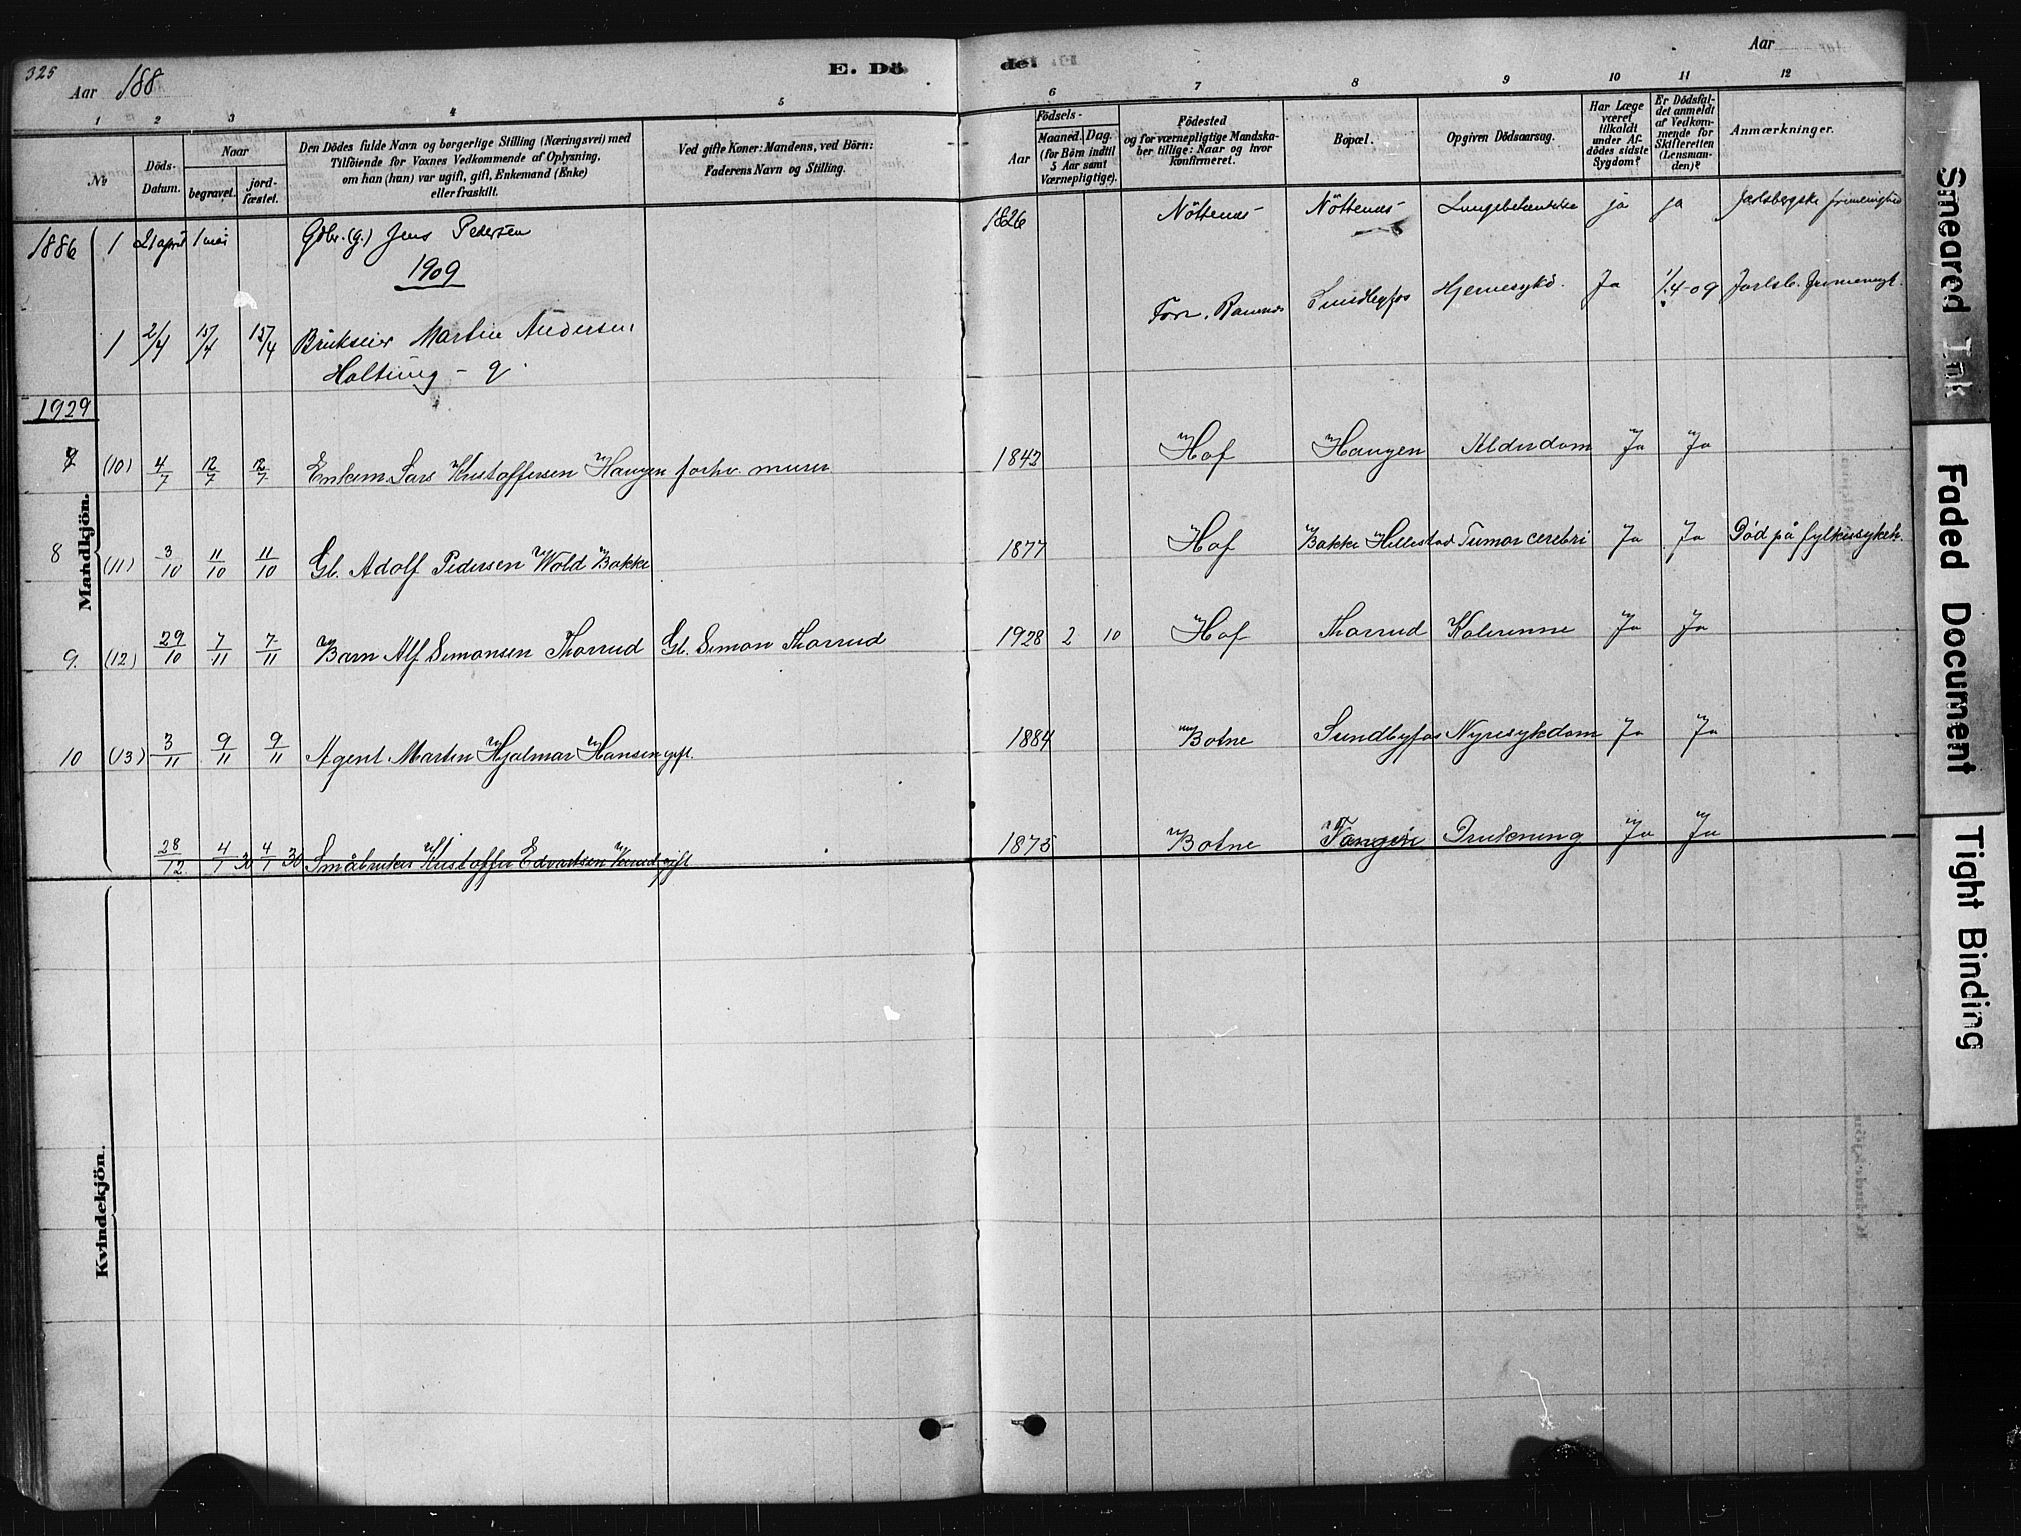 325
Aar 188
E. Dö
de.
Aar
1 2 3 4 5 6 7 8 9 10 11 12
No
Döds-Datum.
Naar
begravet.
jord-fæstet.
Den Dödes fulde Navn og borgerlige Stilling (Næringsvei) med
Tilföiende for Voxnes Vedkommende af Oplysning,
om han (hun) var ugift, gift, Enkemand (Enke)
eller fraskilt.
Ved gifte Koner: Mandens, ved Börn:
Faderens Navn og Stilling.
Födsels-
Aar
Maaned. Dag.
(for Börn indtil
5 Aar samt
Værnepligtige).
Födested
og for værnepligtige Mandska-
ber tillige: Naar og hvor
konfirmeret.
Bopæl.
Opgiven Dödsaarsag.
Har Læge
været
tilkaldt
under Af-
dödes sidste
Sygdom?
Er Dödsfal-
det anmeldt
af Vedkom-
mende for
Skifteretten
(Lensman-
den)?
Anmærkninger.
1886 1 21 april 1 mai Gdbr. (g.) Jens Pedersen 1826 Nöttenæs Nöttenæs Lungebetændelse ja ja Jarlsbergske frimenighed
1909
1 2/4 15/4 15/4 Brukseier Martin Andersen Ramnes Sundbyfos Hjernesykd. Ja 1/4-09 Jarlsb. frimenigt.
Holtung - g.
1929
7 (10) 4/7 12/7 12/7 Enkem. Lars Kristoffersen Haugen forhv. murer 1842 Hof Haugen Alderdom Ja Ja
8 (11) 3/10 11/10 11/10 Gb. Adolf Pedersen Wold Bakke 1877 Hof Bakke Hillestad Tumor cerebri Ja Ja Död på fylkessykeh.
9. (12) 29/10 7/11 7/11 Barn Alf Simonsen Thorrud Gb. Simon Thorrud 1928 2 10 Hof Thorrud Kolerinne Ja Ja
10 (13) 3/11 9/11 9/11 Agent Martin Hjalmar Hansen gift. 1884 Botne Sundbyfos Nyresykdom Ja Ja
28/12 4/1 30 4/1 30 Småbruker Kristoffer Edvartsen gift 1875 Botne Tangen Drukning Ja Ja
Mandkjön.
Kvindekjön.
Smeared Ink
Faded Document
Tight Binding